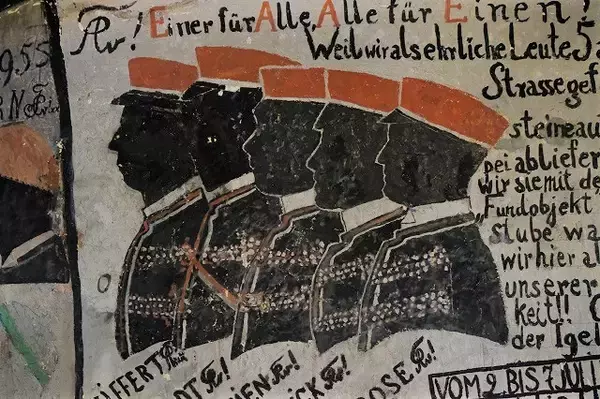 9.55
Rv! Einer für Alle, Alle für Einen!
Weil wir als ehrliche Leute 5
Strassegef
steineau
pei abliefer
wir sie mit de
"Fundobjekt
stube wa
wir hier al
unserer
keit!!
der Igel
IFFERT
DT
IEN
ICK
ROSE
VOM 2. BIS 7. JULI